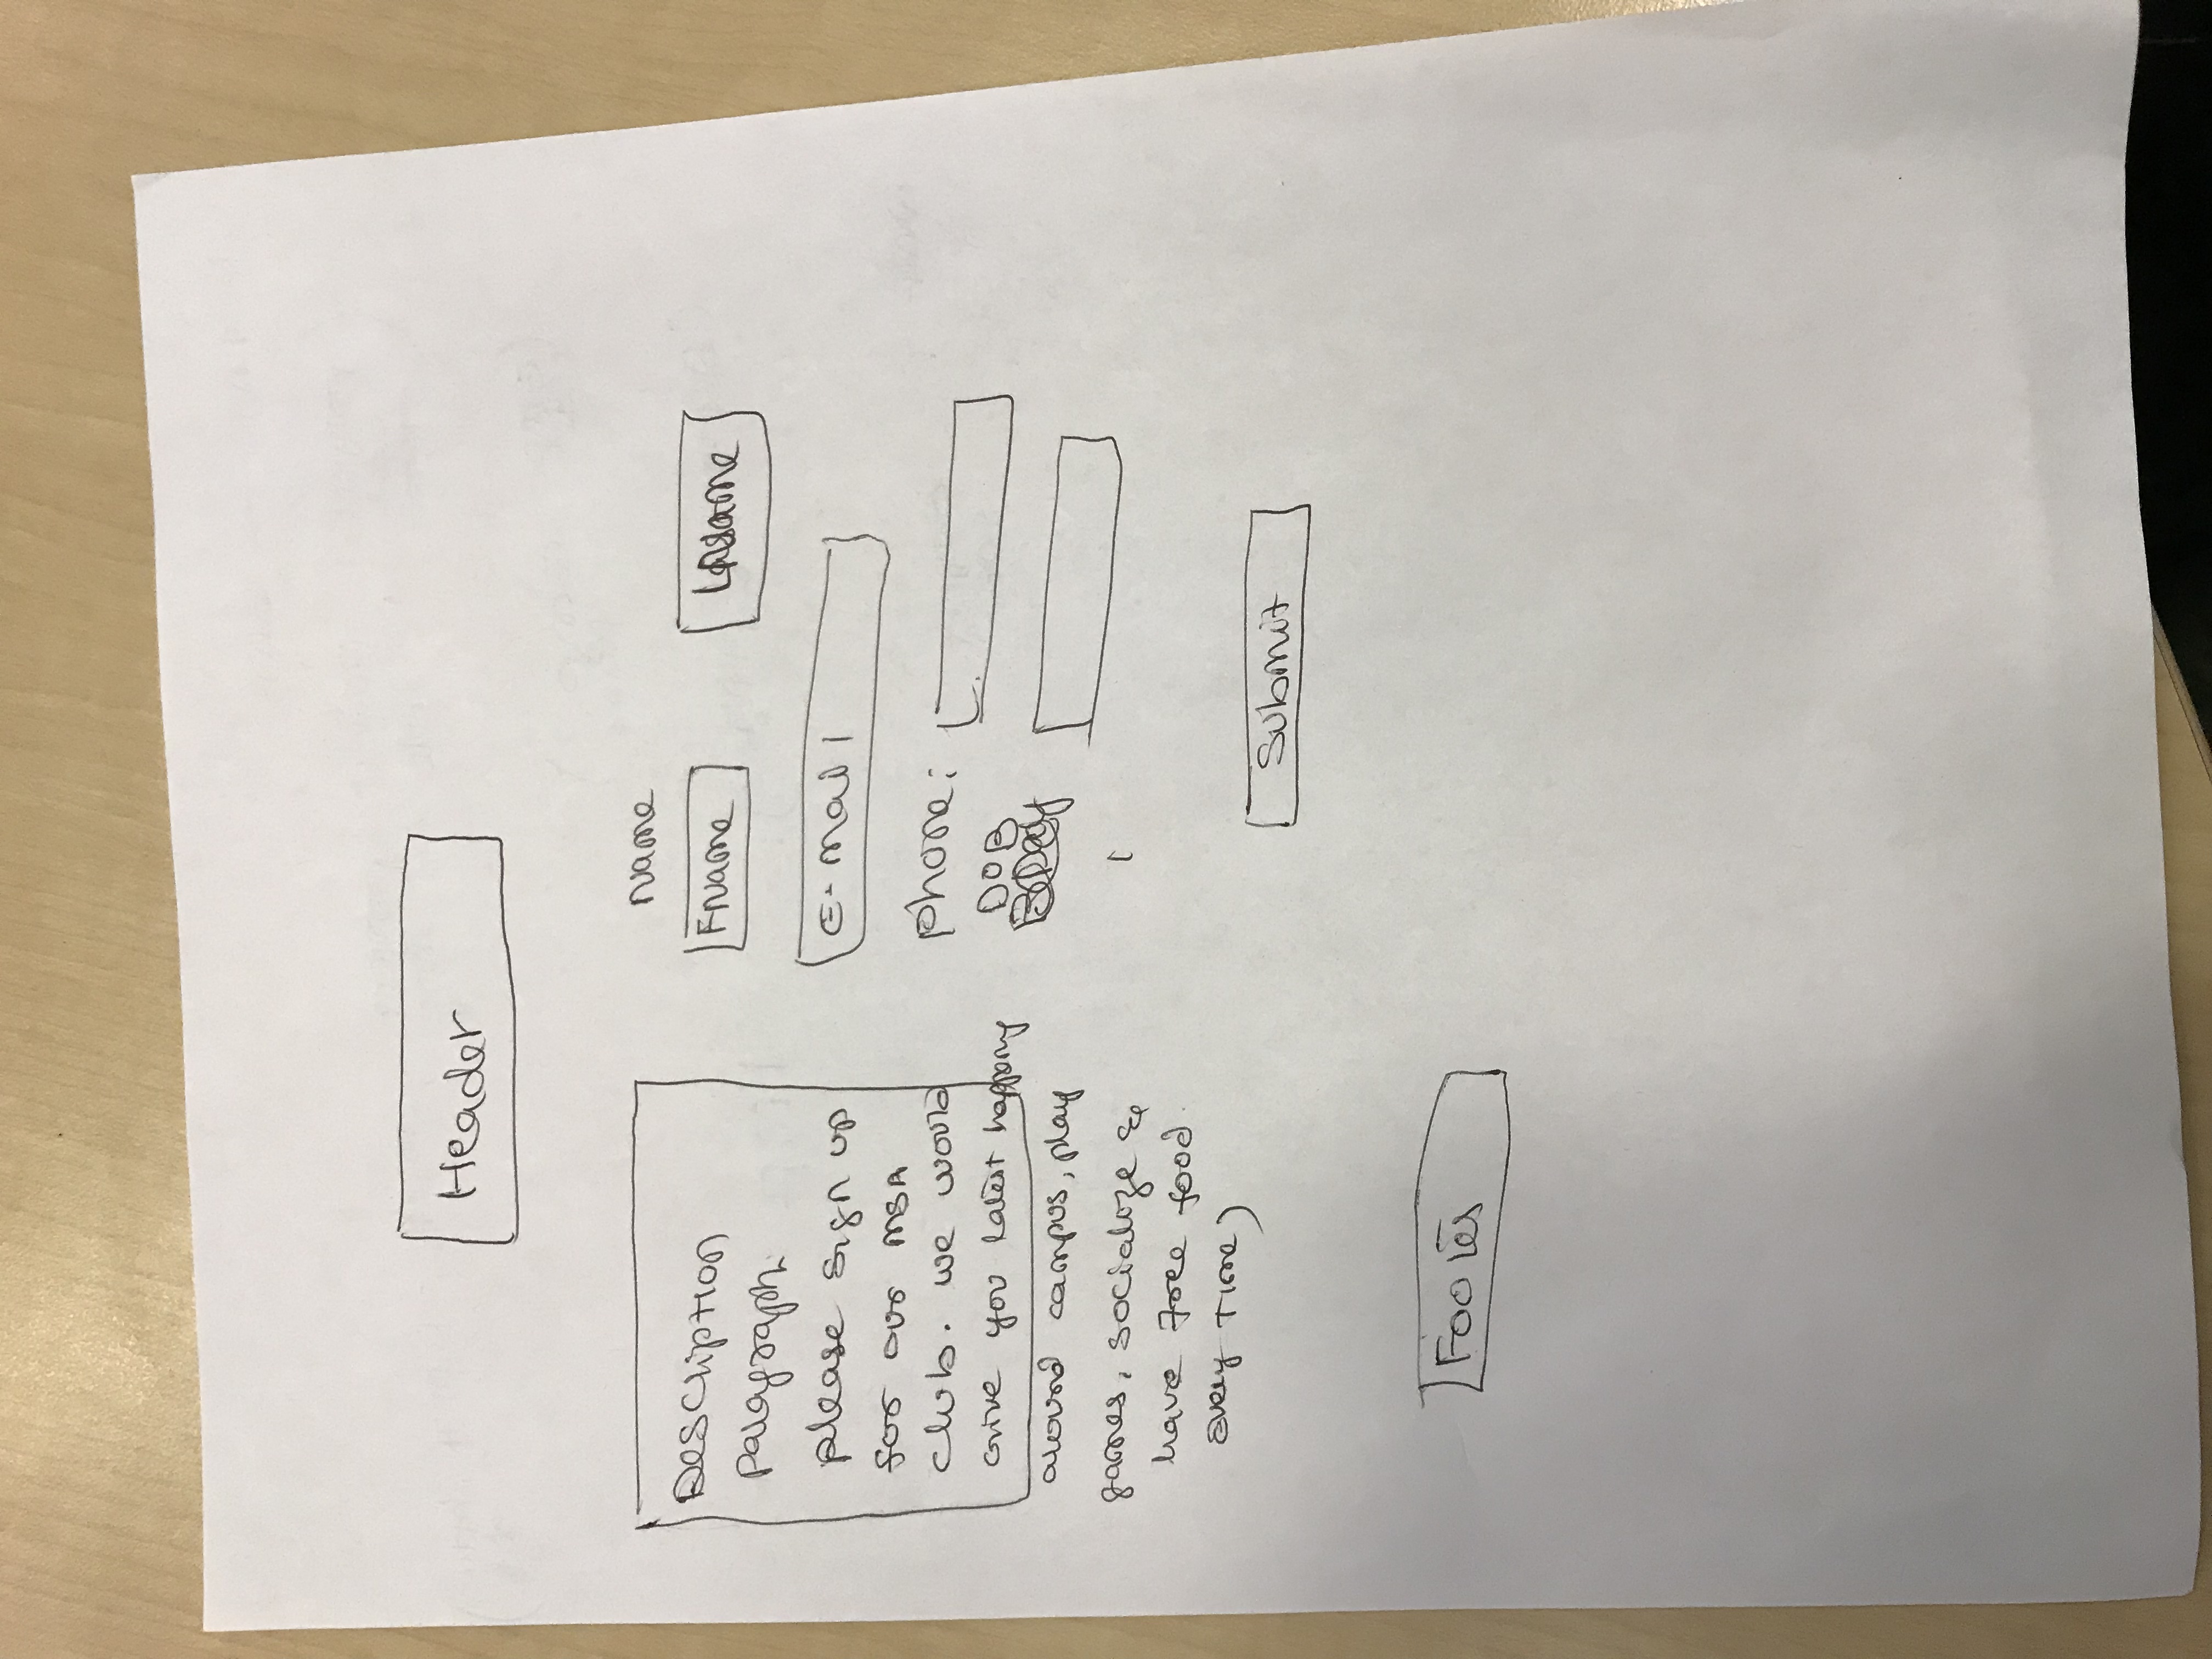 Header
Description
Paragraph
please sign up
for our MSA
club. we would
Give you latest happeng
around campus, play
games, socialize &
have free food
every time)
Name
FName
E-mail
phone:
DOB
Submit
Footer